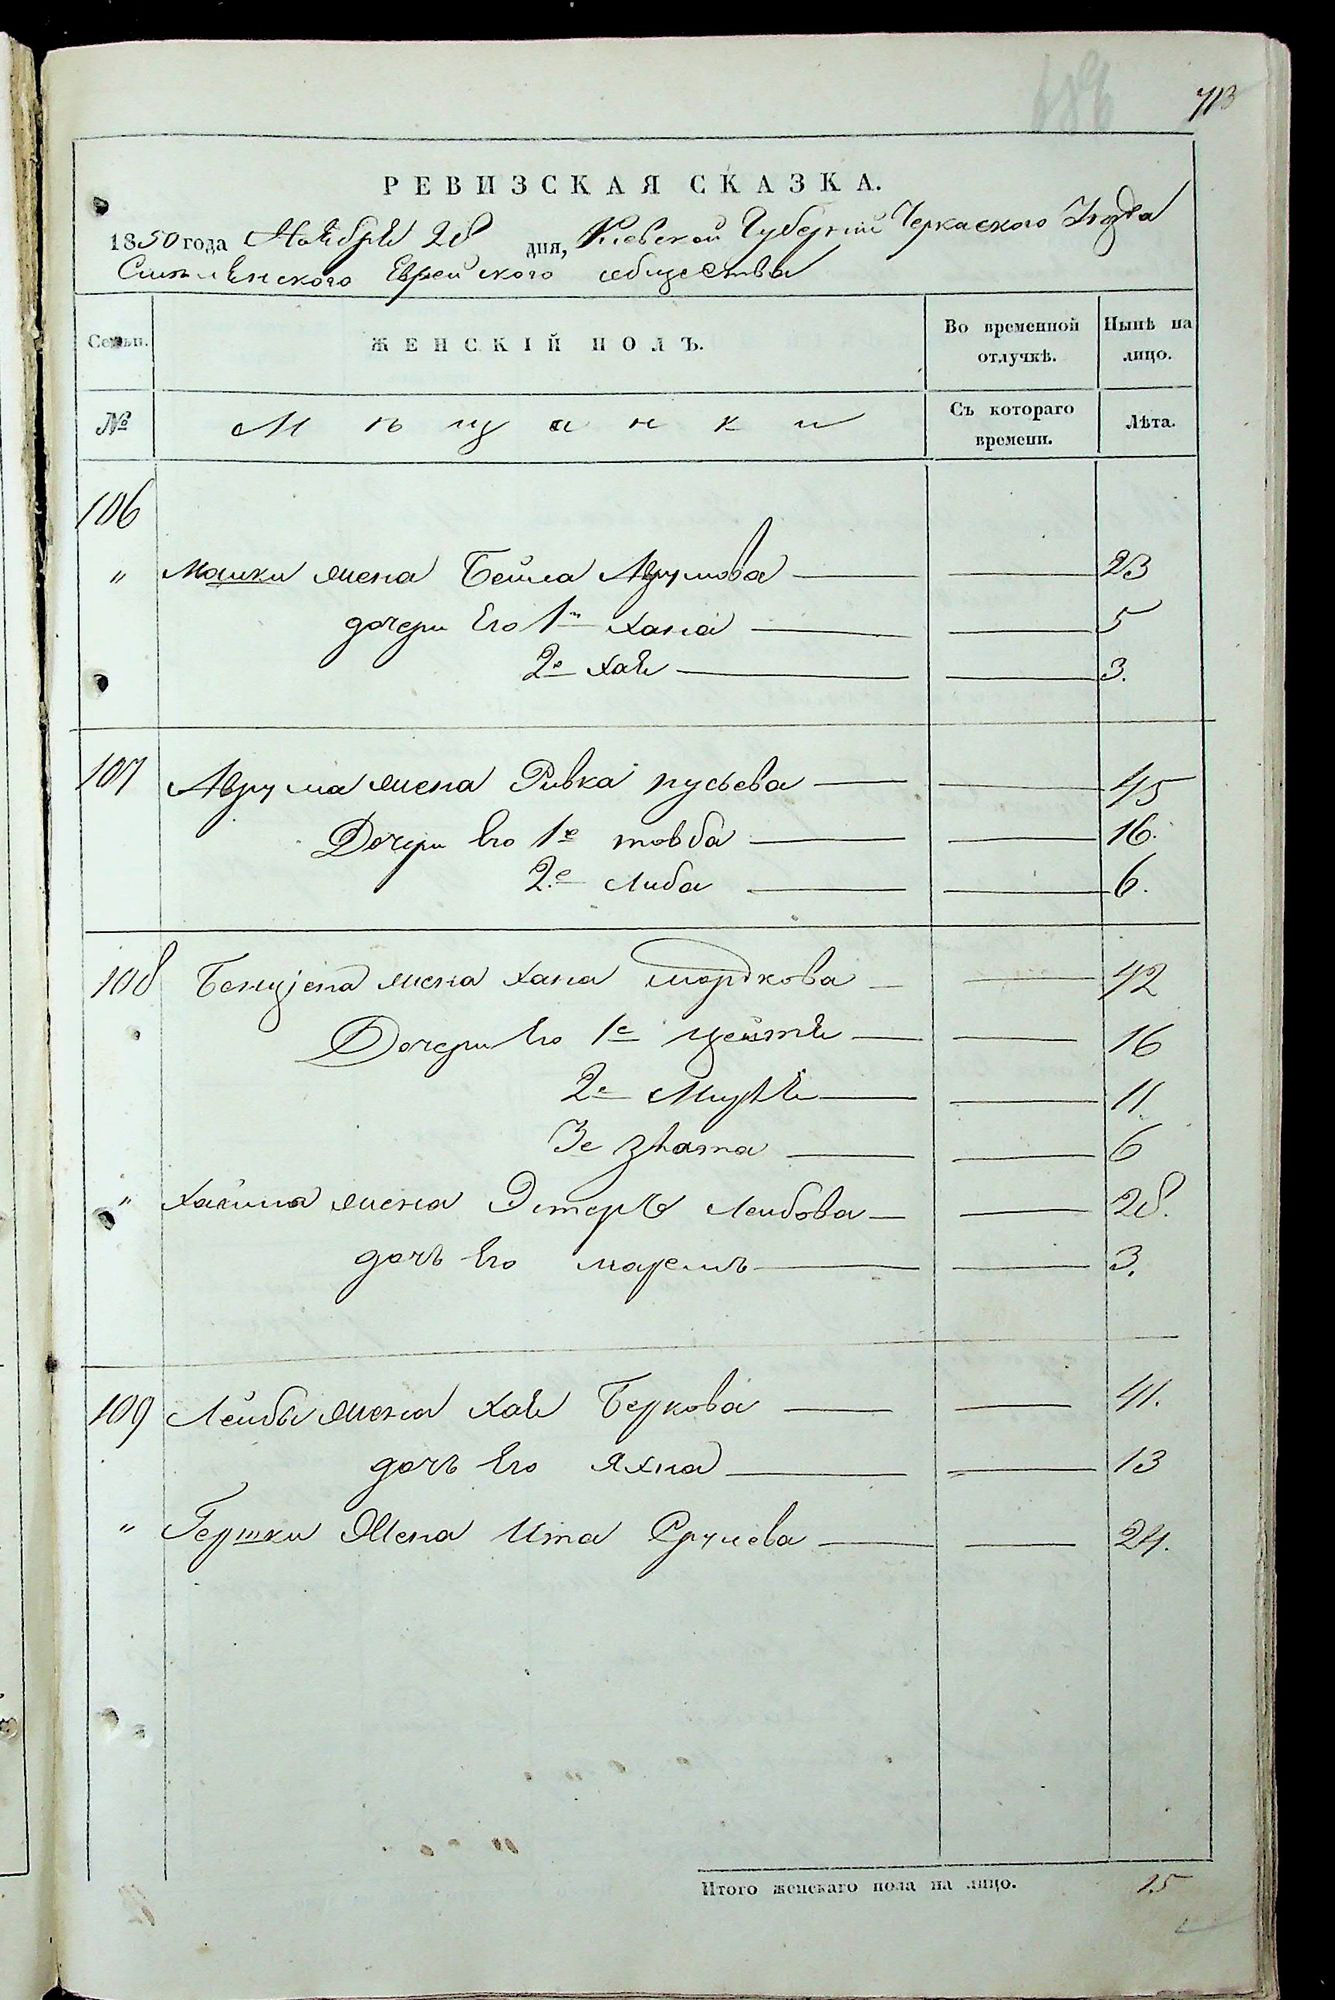 713
РЕВИЗСКАЯ СКАЗКА.
1850 года Ноября 28 дня, Киевской Губернии Черкаского Уезда
Еврейского общества
Семьи. ЖЕНСКІЙ ПОЛЪ. Во временной отлучкѣ. Нынѣ на лицо.
№ Мѣщанки Съ котораго времени. Лѣта.
106
" Мошки жена Бейла Аврумова 23
дочери Его 1я Хана 5
2е Хая 3.
107 Аврума жена Ривка Русьева 45
Дочери Его 1е товба 16.
2е Либа 6.
108 Бенциона жена Хана мордкова 42
Дочери Его 1е Цейтя 16
2е 11
3е Злата 6
" Хаима жена Эстеръ Лейбова 28.
дочь Его 3.
109 Лейбы жена Хая Беркова 41.
дочь Его Яхна 13
" Гершки Жена Ита Срулева 24.
Итого женскаго пола на лицо. 15